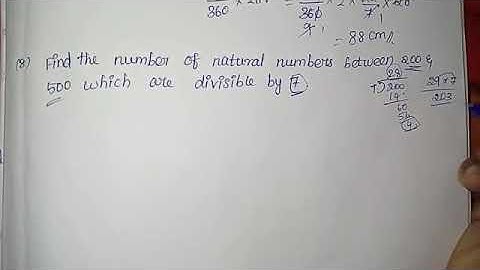 360 × 2πr = 360 × 2 × 7 ×
= 88 cm//.
(8) Find the number of natural numbers between 200 &
500 which are divisible by 7.
28
7) 200 29×7
14 203
60
56
4